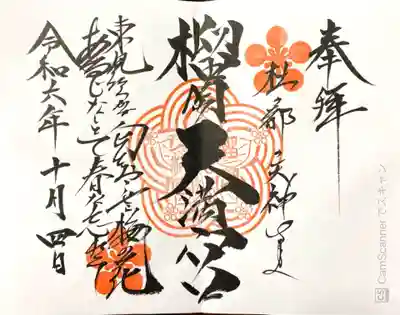 奉拝
杜の都 天神さま
榴岡天満宮
東風吹かば匂ひおこせよ梅花
あるじなしとて春な忘れそ
令和六年十月四日
CS CamScanner でスキャン